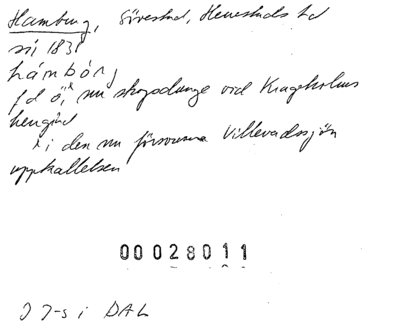 Hamburg, Sövestad, Herrestads hd
sit 1831
hámbórj
fd ö,x nu skogsdunge vid Krageholms
kungård
x i den nu försvunna Villevadssjön
uppkallelsen
00028011
J J-s i DAL